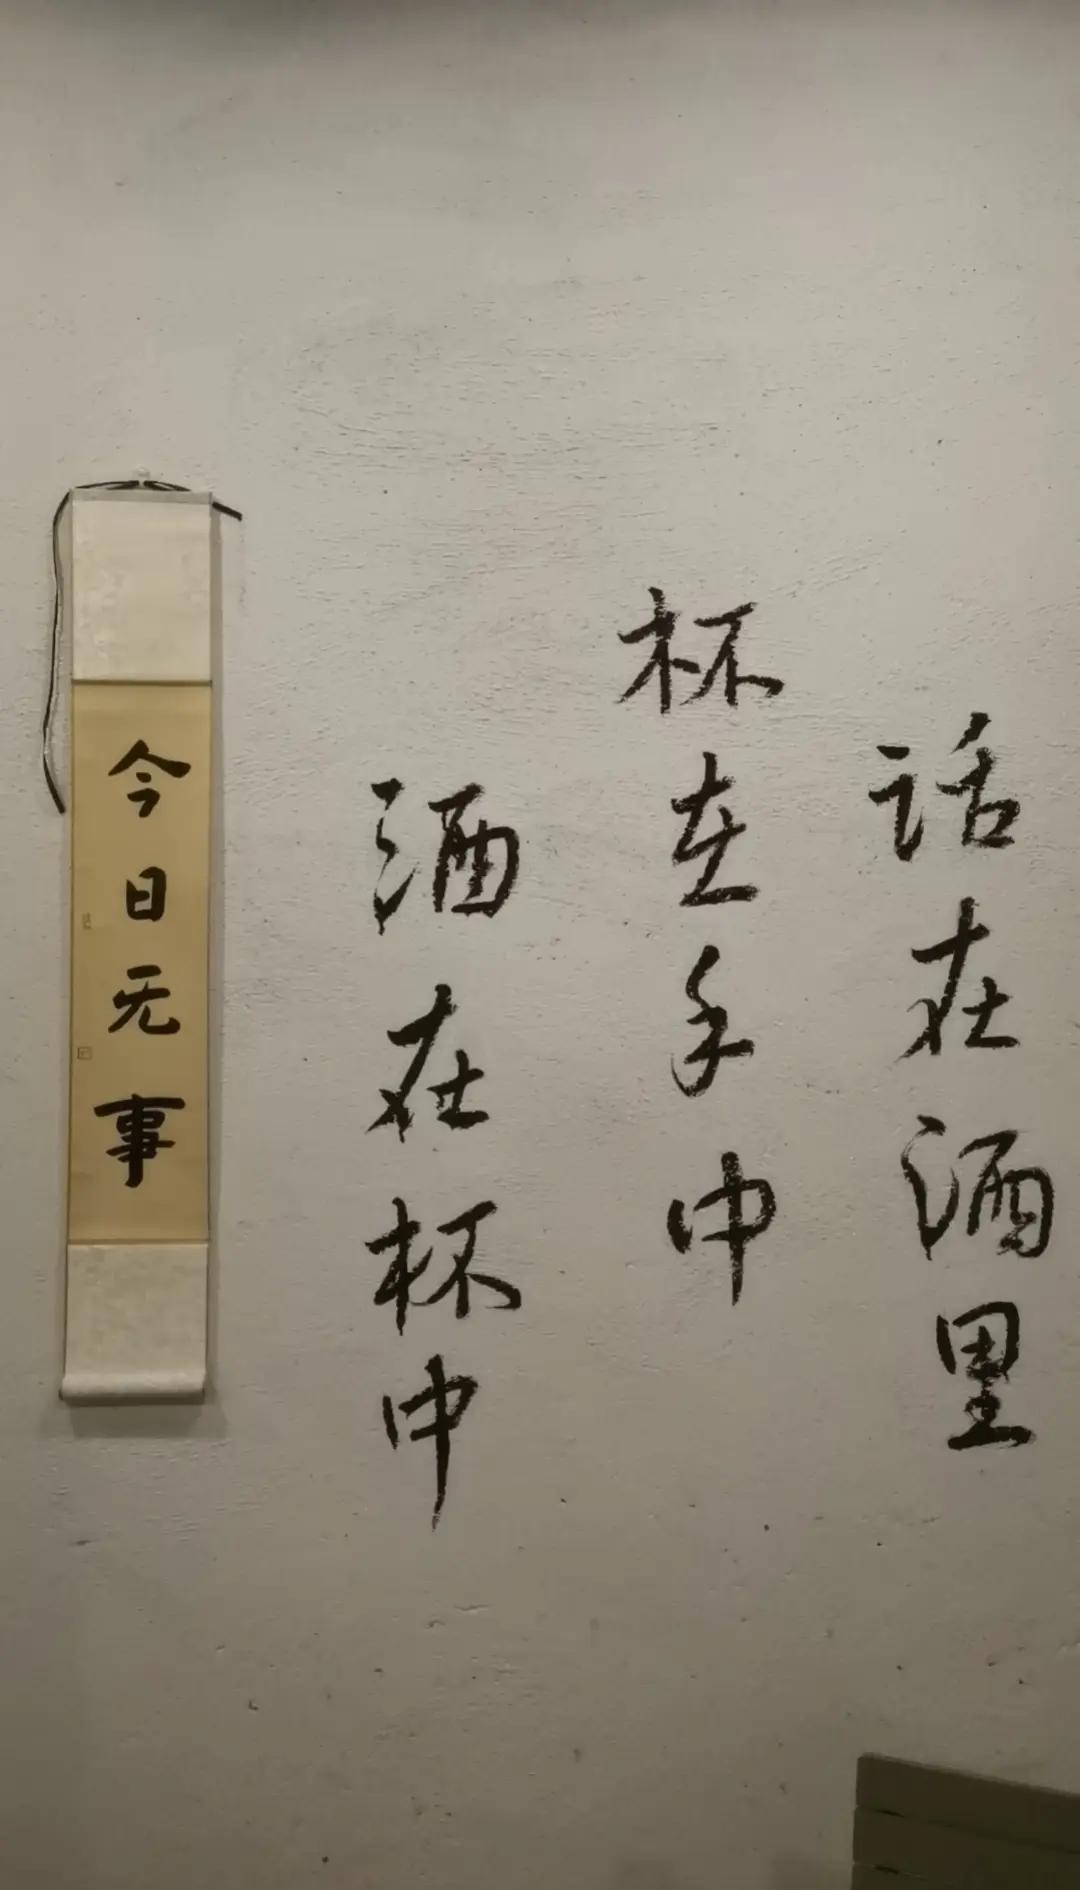 话在酒里
杯在手中
酒在杯中
今日无事